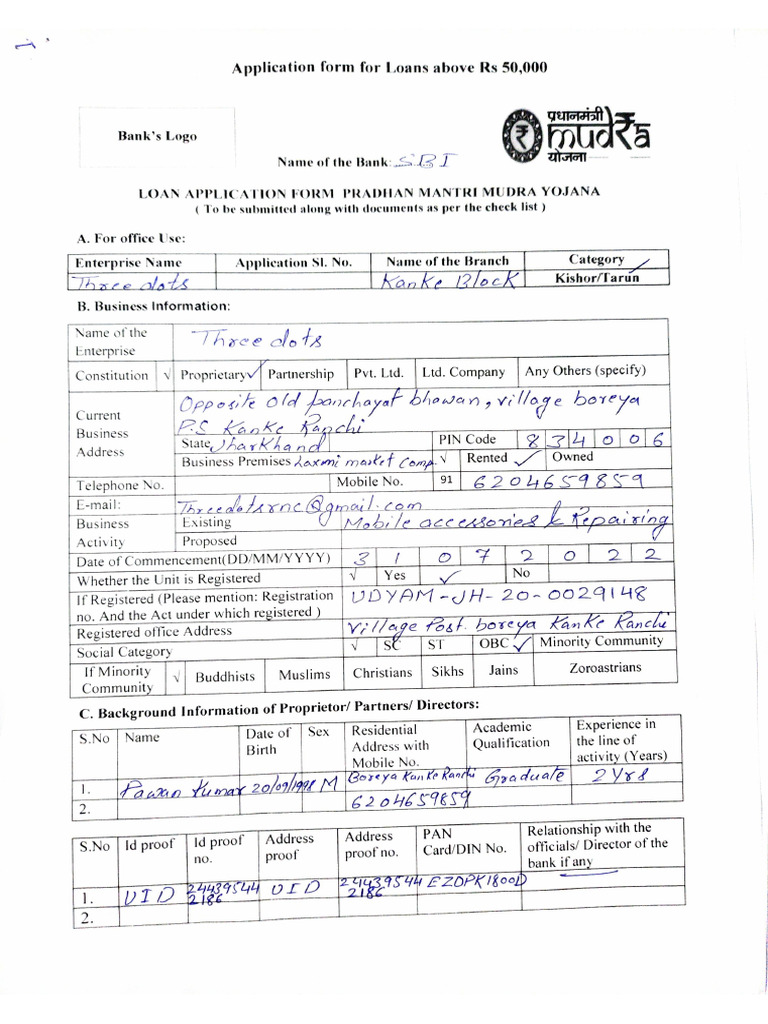 Application form for Loans above Rs 50,000
Bank's Logo
प्रधानमंत्री
mudRa
योजना
Name of the Bank: SBI
LOAN APPLICATION FORM PRADHAN MANTRI MUDRA YOJANA
( To be submitted along with documents as per the check list )
A. For office Use:
Enterprise Name Application Sl. No. Name of the Branch Category
Three dots Kanke Block Kishor/Tarun
B. Business Information:
Name of the Enterprise Three dots
Constitution √ Proprietary ✓ Partnership Pvt. Ltd. Ltd. Company Any Others (specify)
Current Business Address Opposite old panchayat bhawan, village boreya
P.S Kanke Ranchi
State Jharkhand PIN Code 834006
Business Premises Laxmi market Comp. √ Rented ✓ Owned
Telephone No. Mobile No. 91 6204659859
E-mail: Threedotsrnc@gmail.com
Business Activity Existing Mobile accessories & Repairing
Proposed
Date of Commencement(DD/MM/YYYY) 31072022
Whether the Unit is Registered √ Yes ✓ No
If Registered (Please mention: Registration no. And the Act under which registered ) UDYAM-JH-20-0029148
Registered office Address village Post. boreya Kanke Ranchi
Social Category √ SC ST OBC ✓ Minority Community
If Minority Community √ Buddhists Muslims Christians Sikhs Jains Zoroastrians
C. Background Information of Proprietor/ Partners/ Directors:
S.No Name Date of Birth Sex Residential Address with Mobile No. Academic Qualification Experience in the line of activity (Years)
1. Pawan Kumar 20/09/1998 M Boreya Kanke Ranchi Graduate 2 Yrs
2. 6204659859
S.No Id proof Id proof no. Address proof Address proof no. PAN Card/DIN No. Relationship with the officials/ Director of the bank if any
1. UID 24439544 2186 UID 24439544 2186 EZDPK1800D
2.